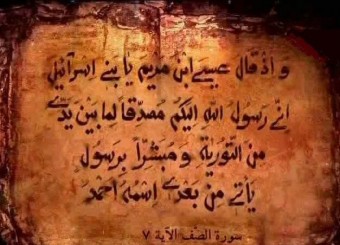 و اذ قال عيسے ابن مريم يا بنے اسرآئيل
انے رسول اللہ اليكم مصدقاً لما بين يدے
من التورية و مبشراً برسول
يأتے من بعدے اسمہ احمد
سورة الصف الآية ٧